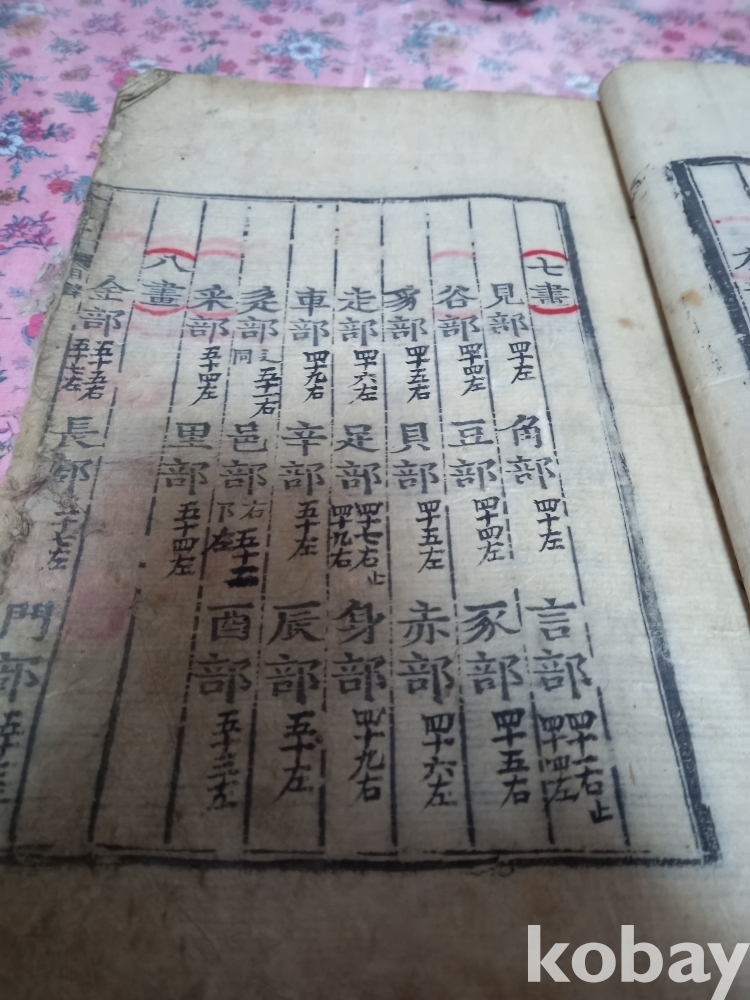 七畫
見部 四十左 角部 四十左 言部 四十一右止四十四左
谷部 四十四左 豆部 四十四左 豕部 四十五右
豸部 四十五右 貝部 四十五左 赤部 四十六左
走部 四十六左 足部 四十七右止四十九右 身部 四十九右
車部 四十九右 辛部 五十左 辰部 五十左
辵部 辶同 五十一右 邑部 右 酉部 五十三左
釆部 五十四左 里部 五十四左
八畫
金部 五十五右五十七左 長部 五十七左 門部
kobay